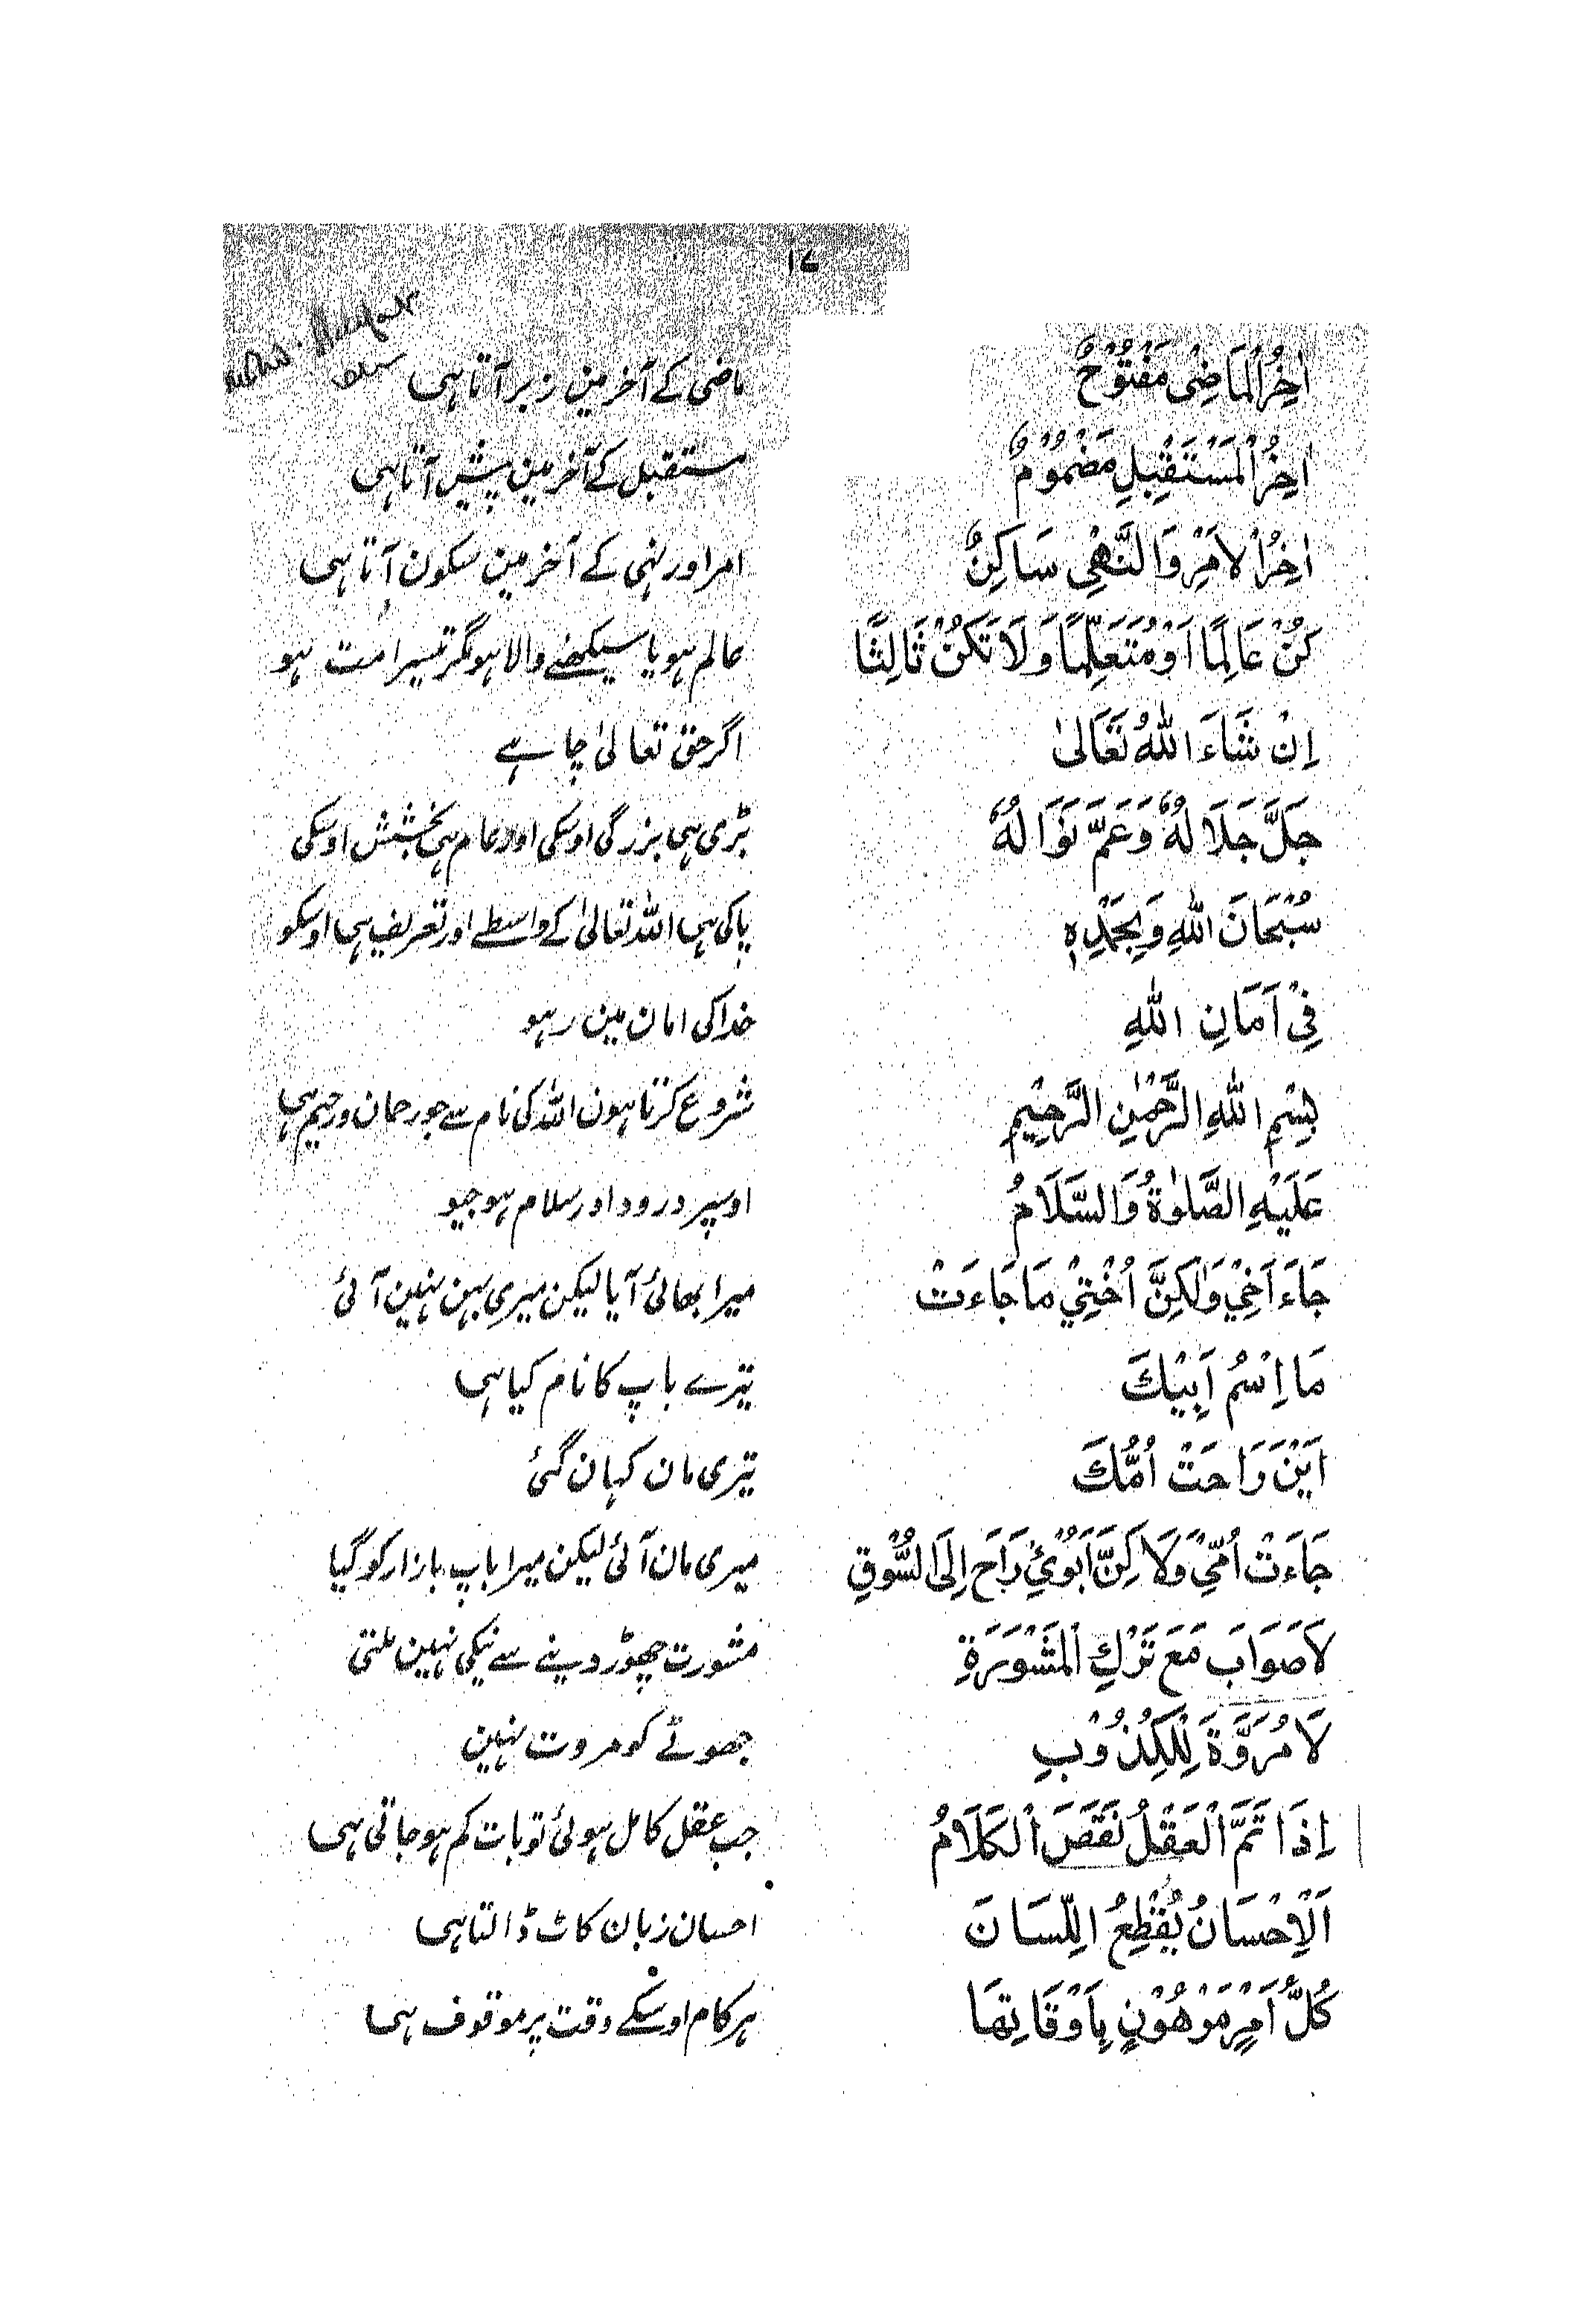 ۱۷
اٰخِرُ الْمَاضِیْ مَفْتُوْحٌ ماضی کے آخر مین زبر آتا ہی
اٰخِرُ الْمَسْتَقْبِلِ مَضْمُوْمٌ مستقبل کے آخر مین پیش آتا ہی
اٰخِرُ الْاَمْرِ وَالنَّهْیِ سَاکِنٌ امر اور نہی کے آخر مین سکون آتا ہی
کُنْ عَالِمًا اَوْ مُتَعَلِّمًا وَلَا تَکُنْ ثَالِثًا عالم ہو یا سیکھنے والا ہو مگر تیسرا مت ہو
اِنْ شَاءَ اللّٰهُ تَعَالیٰ اگر حق تعالیٰ چاہے
جَلَّ جَلَالُهٗ وَعَمَّ نَوَالُهٗ بڑی ہی بزرگی اوسکی اور عام ہی بخشش اوسکی
سُبْحَانَ اللّٰهِ وَبِحَمْدِهٖ پاکی ہی اللہ تعالیٰ کے واسطے اور تعریف ہی اوسکو
فِیْ اَمَانِ اللّٰهِ خدا کی امان مین رہو
بِسْمِ اللّٰهِ الرَّحْمٰنِ الرَّحِیْمِ شروع کرتا ہون اللہ کی نام سے جو رحمان و رحیم ہی
عَلَیْهِ الصَّلٰوةُ وَالسَّلَامُ اوسپر درود اور سلام ہوجیو
جَاءَ اَخِیْ وَلٰکِنَّ اُخْتِیْ مَا جَاءَتْ میرا بھائی آیا لیکن میری بہن نہین آئی
مَا اِسْمُ اَبِیْكَ تیرے باپ کا نام کیا ہی
اَیْنَ رَاحَتْ اُمُّكَ تیری مان کہان گئی
جَاءَتْ اُمِّیْ وَلَاکِنَّ اَبُوْیِٔ رَاحَ اِلَی السُّوْقِ میری مان آئی لیکن میرا باپ بازار کو گیا
لَا صَوَابَ مَعَ تَرْكِ الْمَشْوَرَةِ مشورت چھوڑ دینے سے نیکی نہین ملتی
لَا مُرَوَّةَ لِلْکِذُوْبِ جھوٹے کو مروت نہین
اِذَا تَمَّ الْعَقْلُ نَقَصَ الْکَلَامُ جب عقل کامل ہوئی تو بات کم ہو جاتی ہی
اَلْاِحْسَانُ یُقْطِعُ اللِّسَانَ احسان زبان کاٹ ڈالتا ہی
کُلُّ اَمْرٍ مَرْهُوْنٍ بِاَوْقَاتِهَا ہر کام اوسکے وقت پر موقوف ہی